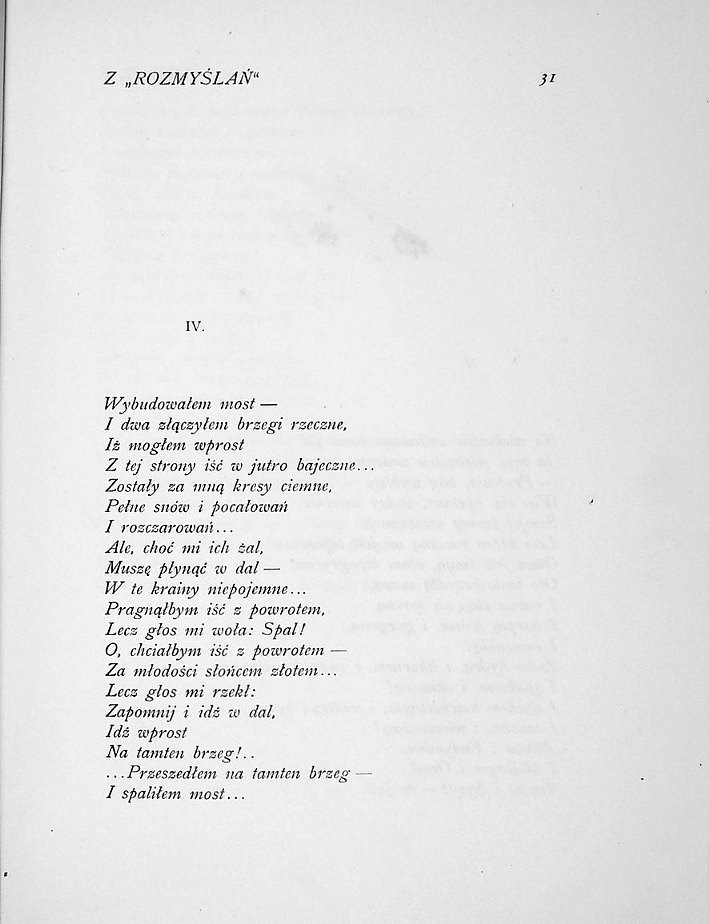 Z „ROZMYŚLAŃ“
31
IV.
Wybudowałem most —
I dwa złączyłem brzegi rzeczne,
Iż mogłem wprost
Z tej strony iść w jutro bajeczne...
Zostały za mną kresy ciemne,
Pełne snów i pocałowań
I rozczarowań...
Ale, choć mi ich żal,
Muszę płynąć w dal —
W te krainy niepojemne...
Pragnąłbym iść z powrotem,
Lecz głos mi woła: Spal!
O, chciałbym iść z powrotem —
Za młodości słońcem złotem...
Lecz głos mi rzekł:
Zapomnij i idź w dal,
Idź wprost
Na tamten brzeg!..
...Przeszedłem na tamten brzeg —
I spaliłem most...